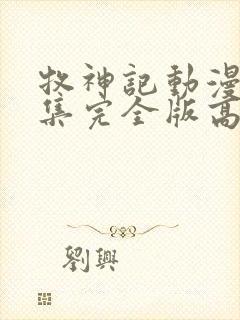 牧神記動漫
集完全版高
劉興